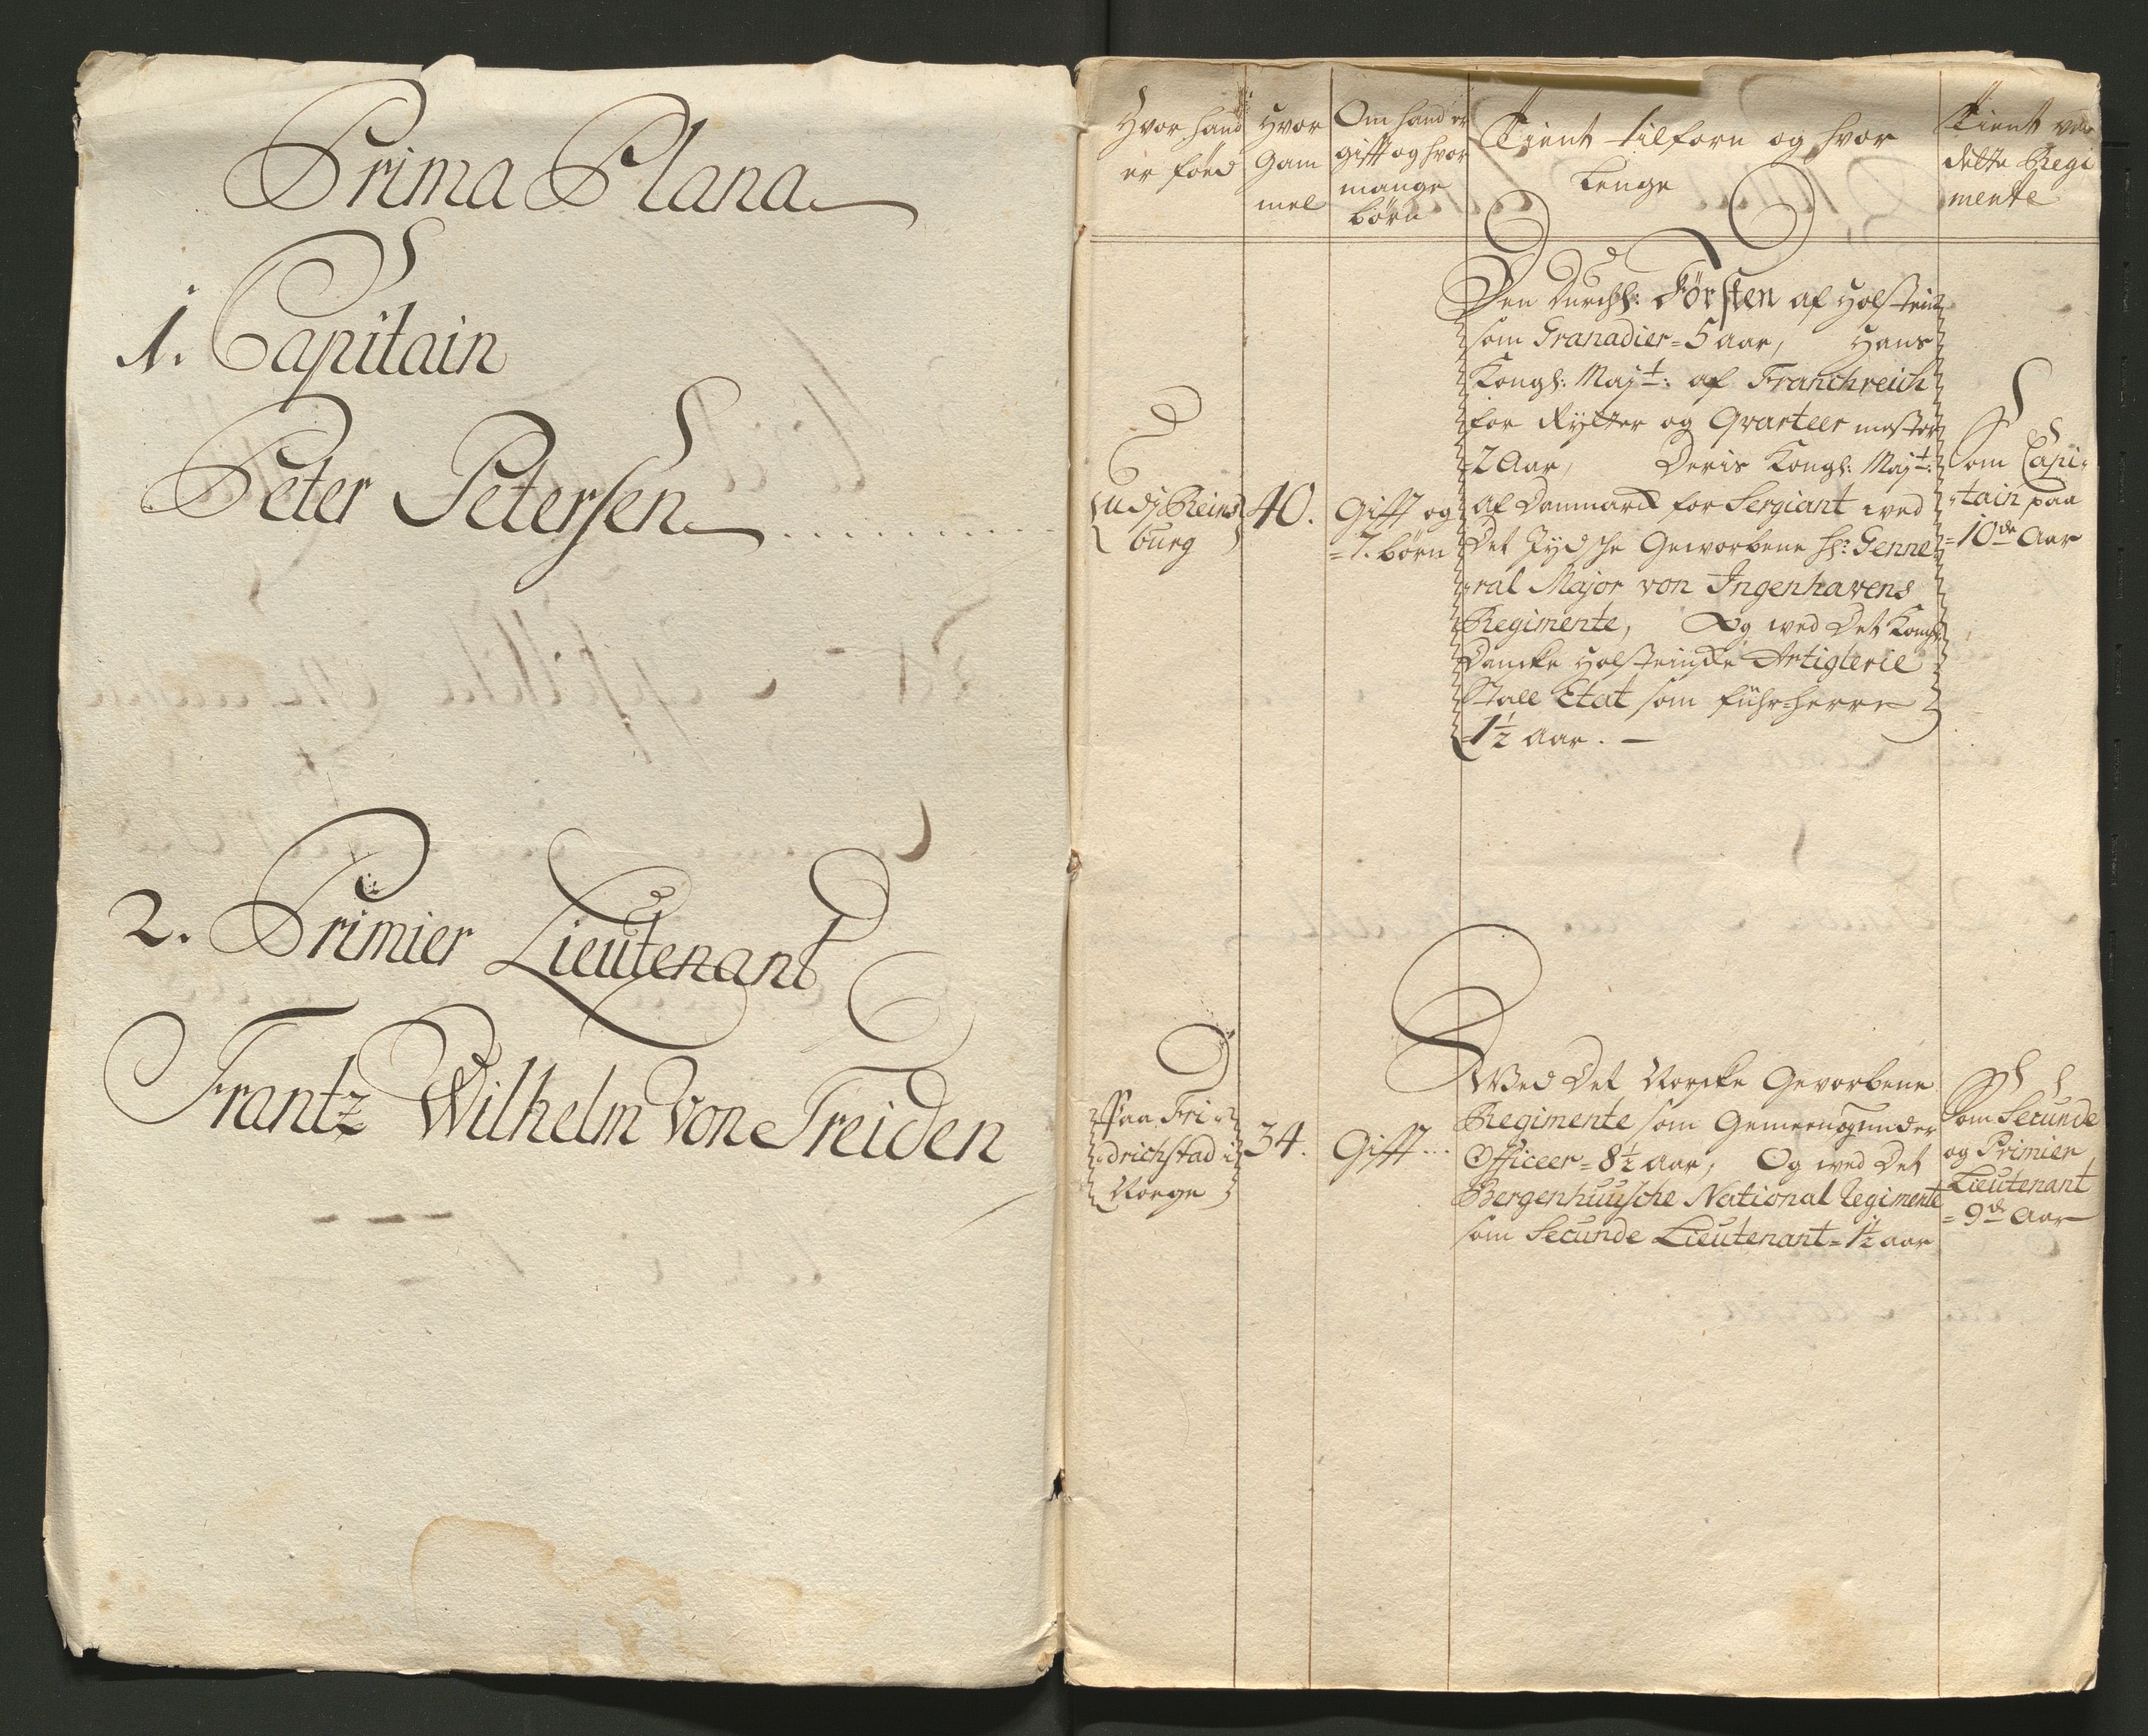 Prima Plana
1. Capitain
Peter Petersen
2. Primier Lieutenant
Frantz Wilhelm Von Treiden
Hvor hand
er föed
Hvor
Gam
mel
Om hand er
gifft og hvor
mange
börn
Tient tilforn og hvor
Lenge
Tient ved
dette Regi
mente
Udj Reins
burg
40.
Gifft og
=7. börn
Den Durchl: Försten af Holstein
som Granadier=5 aar, Hans
Kongl: Majt: af Franchreich
for Rytter og Qvarteer mester
=2 Aar, Deris Kongl: Majt:
af Danmarck for Sergiant wed
Det Jydsche Geworbene Hr: Genne
ral Major von Ingenhavens
Regimente, Og wed Det Kongl:
Dancke Holsteinske Artiglerie
Stall Etat som führ=herre
=1½ aar.
Som Capi=
=tain paa
=10de Aar
Paa Fri=
=drichstad i
Norge
34.
Gifft...
Wed Det Norske Geworbene
Regimente som Gemeen og under
Officeer=8½ aar, Og wed Det
Bergenhuusche National Regimente
som Secunde Lieutenant=1½ aar
Som Secunde
og Primier
Lieutenant
=9de Aar